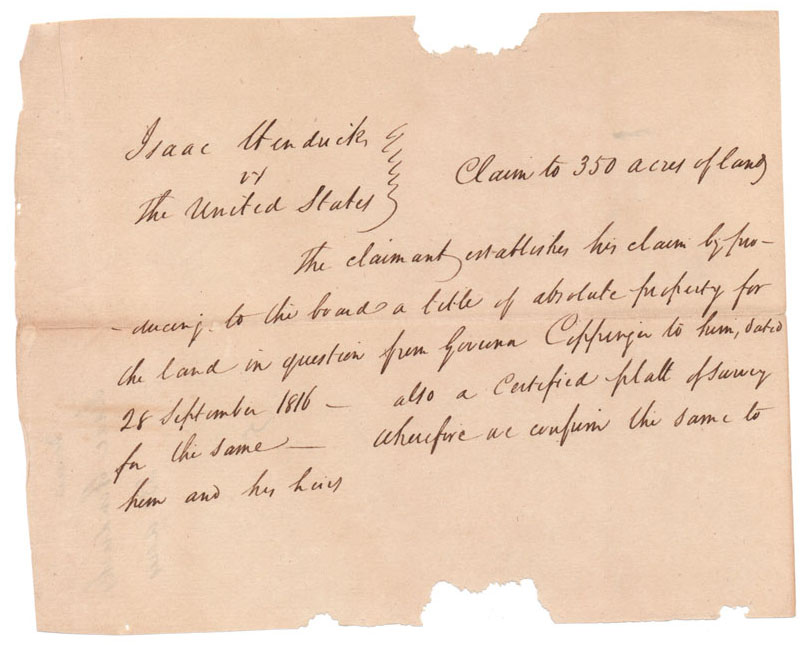 Isaac Hendricks
vs
The United States
Claim to 350 acres of land
The claimant establishes his claim by pro-
-ducing to the board a title of absolute property for
the land in question from Governor Coppinger to him, dated
28 September 1816 — also a certified platt of survey
for the same — wherefore we confirm the same to
him and his heirs